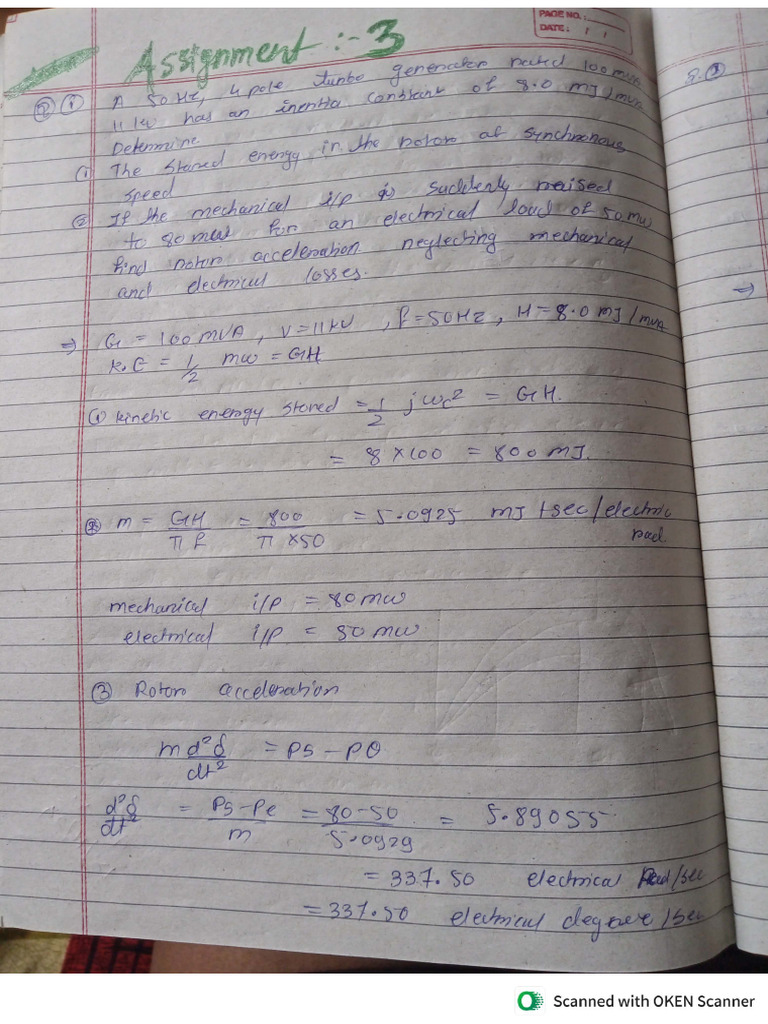 PAGE NO.:
DATE: / /
Assignment :- 3
Q ① A 50 Hz, 4 pole turbo generator rated 100 MVA
11 kv has an inertia constant of 8.0 MJ/mva
Determine
(1) The stored energy in the rotor at synchronous
speed
② If the mechanical i/p is suddenly raised
to 80 mw for an electrical load of 50 mw
find rotor acceleration neglecting mechanical
and electrical losses.
⇒ G = 100 MVA, V = 11 kV, f = 50 Hz, H = 8.0 MJ/MVA
K.E = 1/2 mw = GH
(1) kinetic energy stored = 1/2 jωc² = GH.
= 8 × 100 = 800 MJ.
② m = GH/πf = 800/π×50 = 5.0925 MJ + sec/electric
rad.
mechanical i/p = 80 mw
electrical i/p = 50 mw
③ Rotor acceleration
m d²δ/dt² = Ps - Pe
d²δ/dt² = Ps-Pe/m = 80-50/5.0929 = 5.89055
= 337.50 electrical Rad/sec
= 337.50 electrical degree/sec
Q.②
⇒
⇒
Scanned with OKEN Scanner